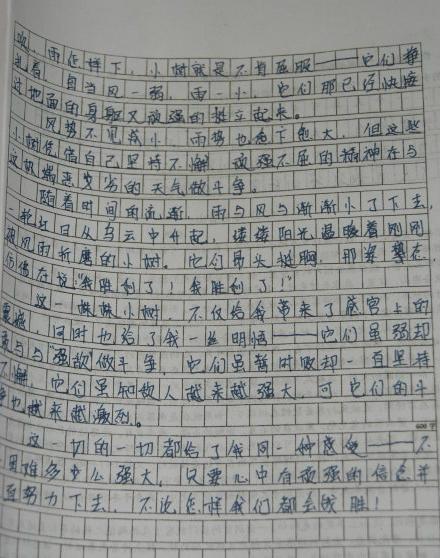 吹，雨怎样下，小树就是不肯屈服——它们挣
扎着，每当风一弱，雨一小，它们那已经快接
近地面的身躯又顽强的挺立起来。
风势不见减小，雨势也愈下愈大，但这些
小树凭借自己坚持不懈，顽强不屈的精神在与
这极端恶劣的天气做斗争。
随着时间的流逝，雨与风与渐渐小了下去，
一轮红日从乌云中升起，缕缕阳光温暖着刚刚
被风雨折磨的小树。它们昂头挺胸，那姿势在
仿佛在说："我胜利了！我胜利了！"
这一株株小树，不仅给我带来了感官上的
震撼，同时也给了我一丝明悟——它们虽弱却
与"强敌"做斗争，它们虽暂时败却一直坚持
不懈，它们虽知敌人越来越强大，可它们的斗
争也越来越激烈。
600字
这一切的一切都给了我同一种感受——不
困难多么强大，只要心中有顽强的信念并
直努力下去，不论怎样我们都会战胜！